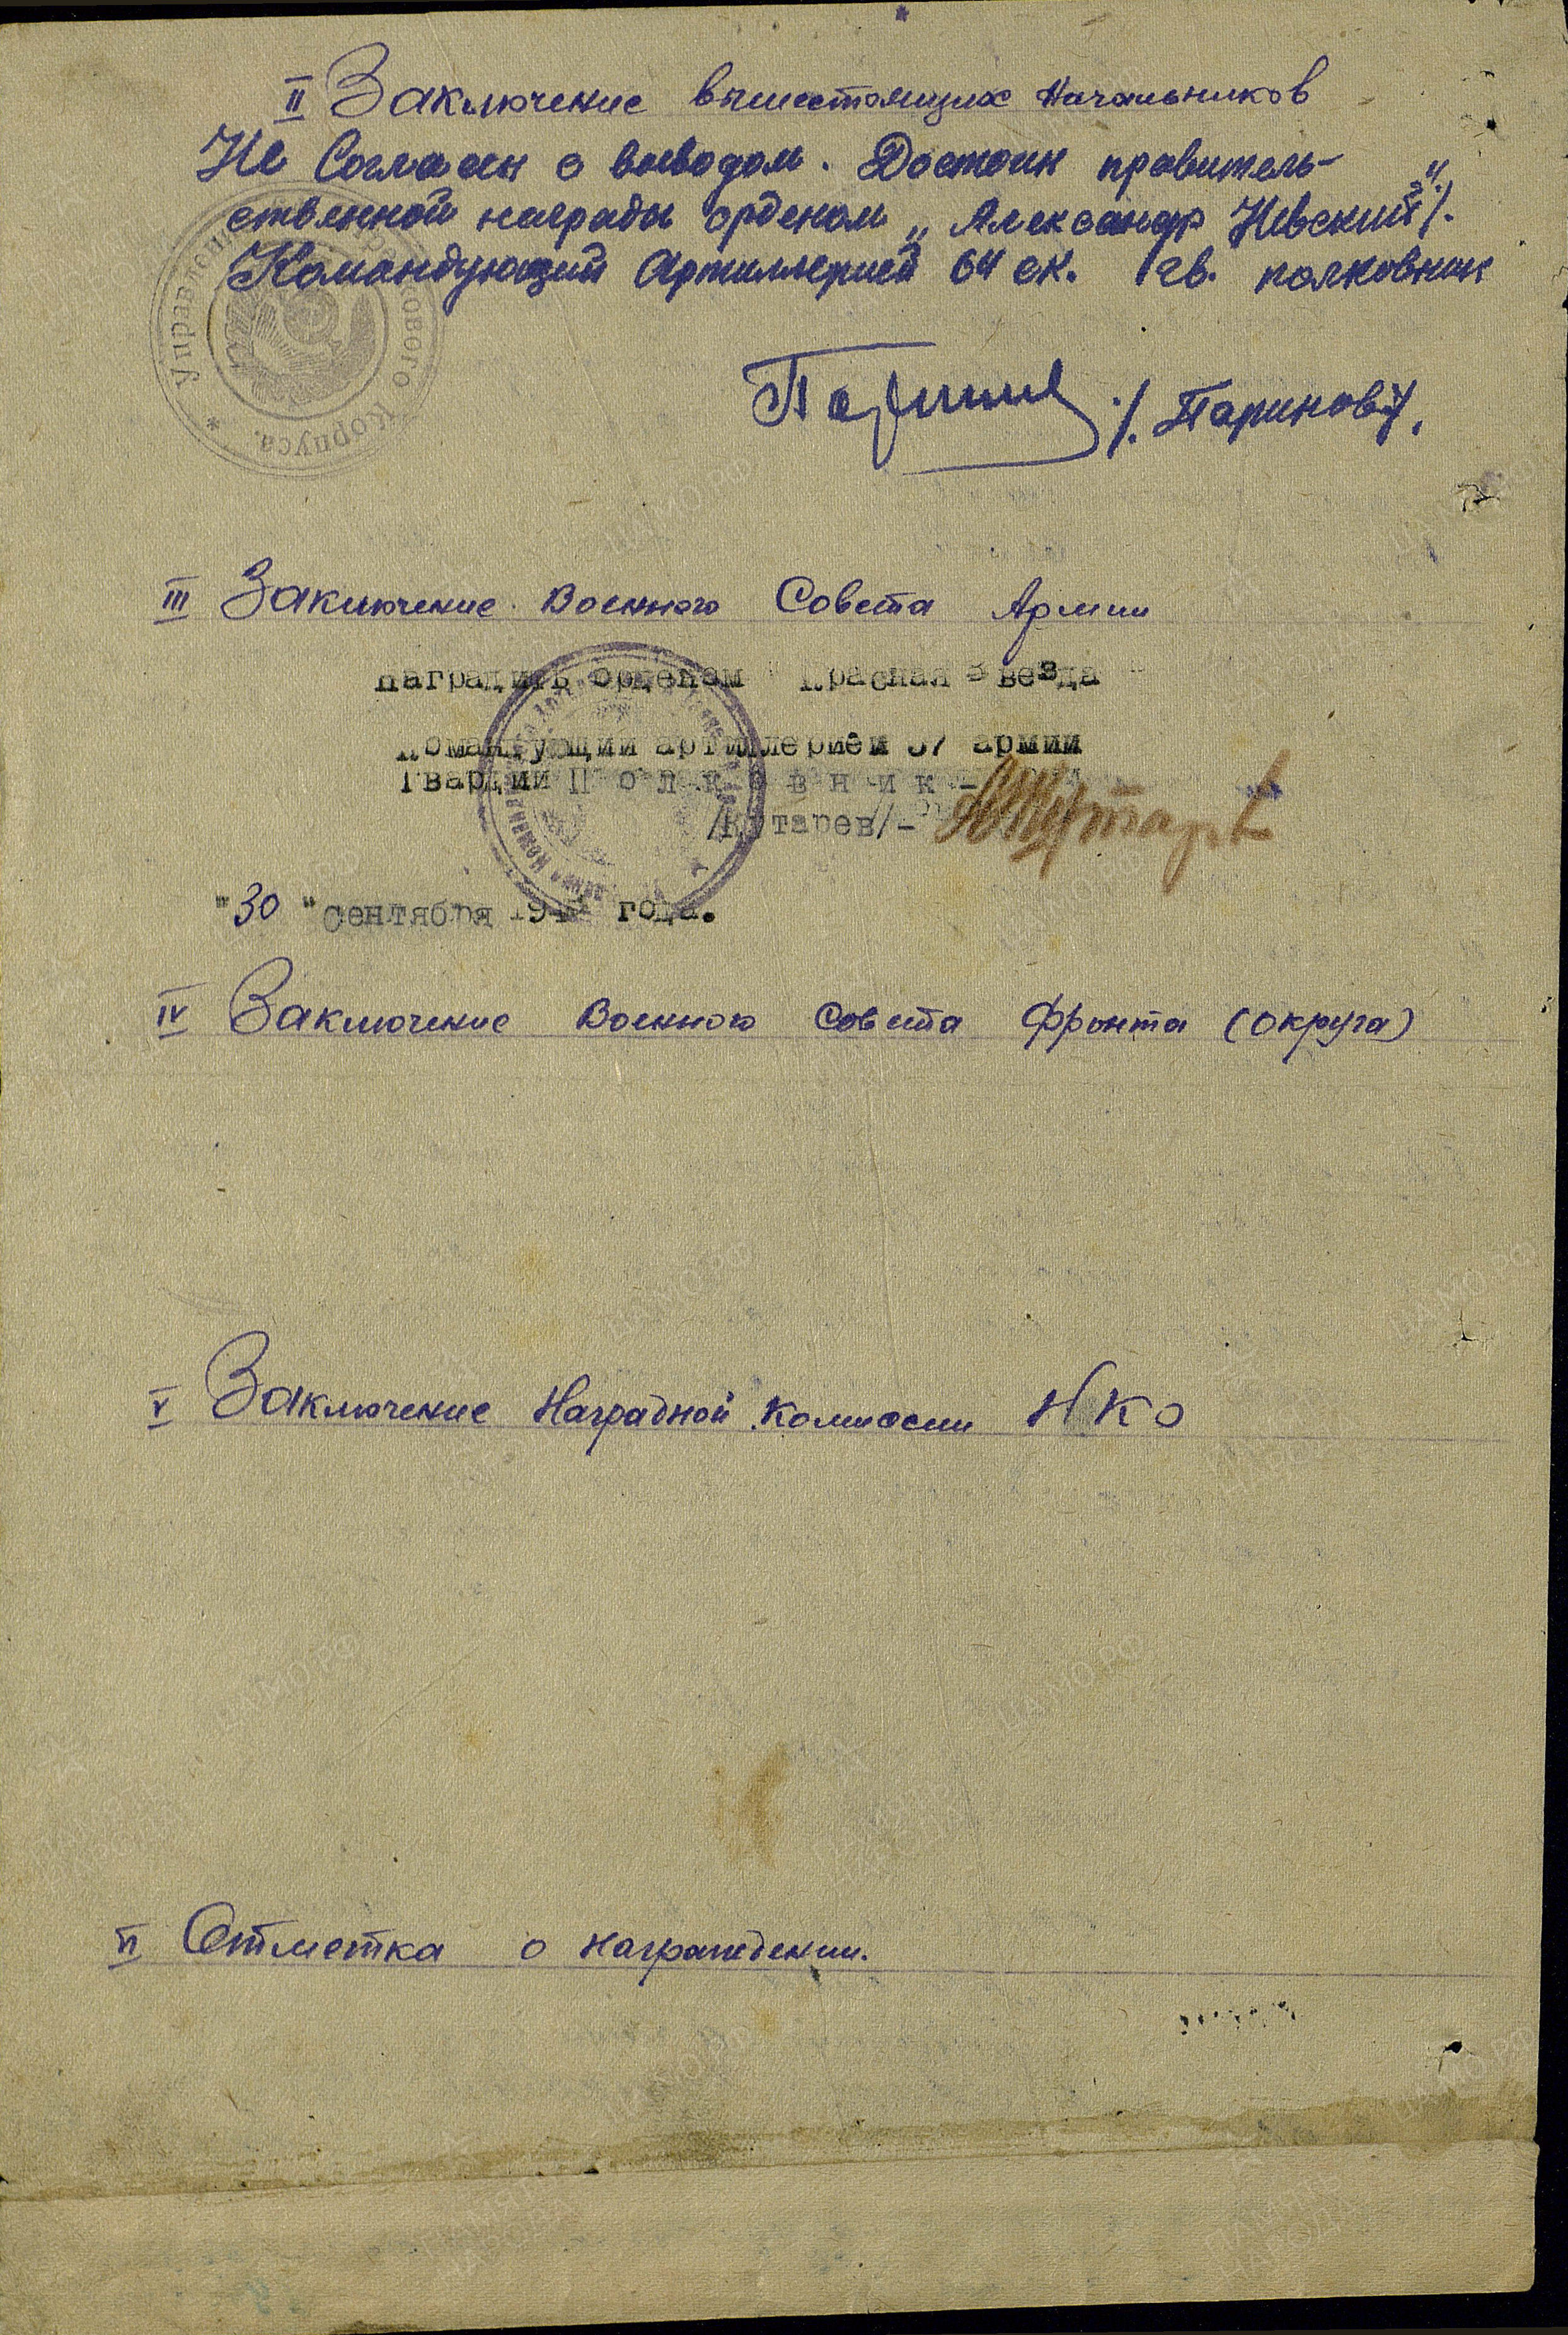 II Заключение вышестоящих Начальников
Не Согласен с выводом. Достоин правитель-
ственной награды орденом „Александр Невский".
Командующий Артиллерией 64 ск. гв. полковник
/. Паринов/.
Управление
ового Корпуса
III Заключение Военного Совета Армии
Наградить орденом "Красная Звезда"
Командующий артиллерией 57 армии
Гвардии Полковник -
/Кутарев/-
"30" сентября 194 года.
IV Заключение Военного Совета Фронта (Округа)
V Заключение Наградной Комиссии НКО
VI Отметка о награждении.